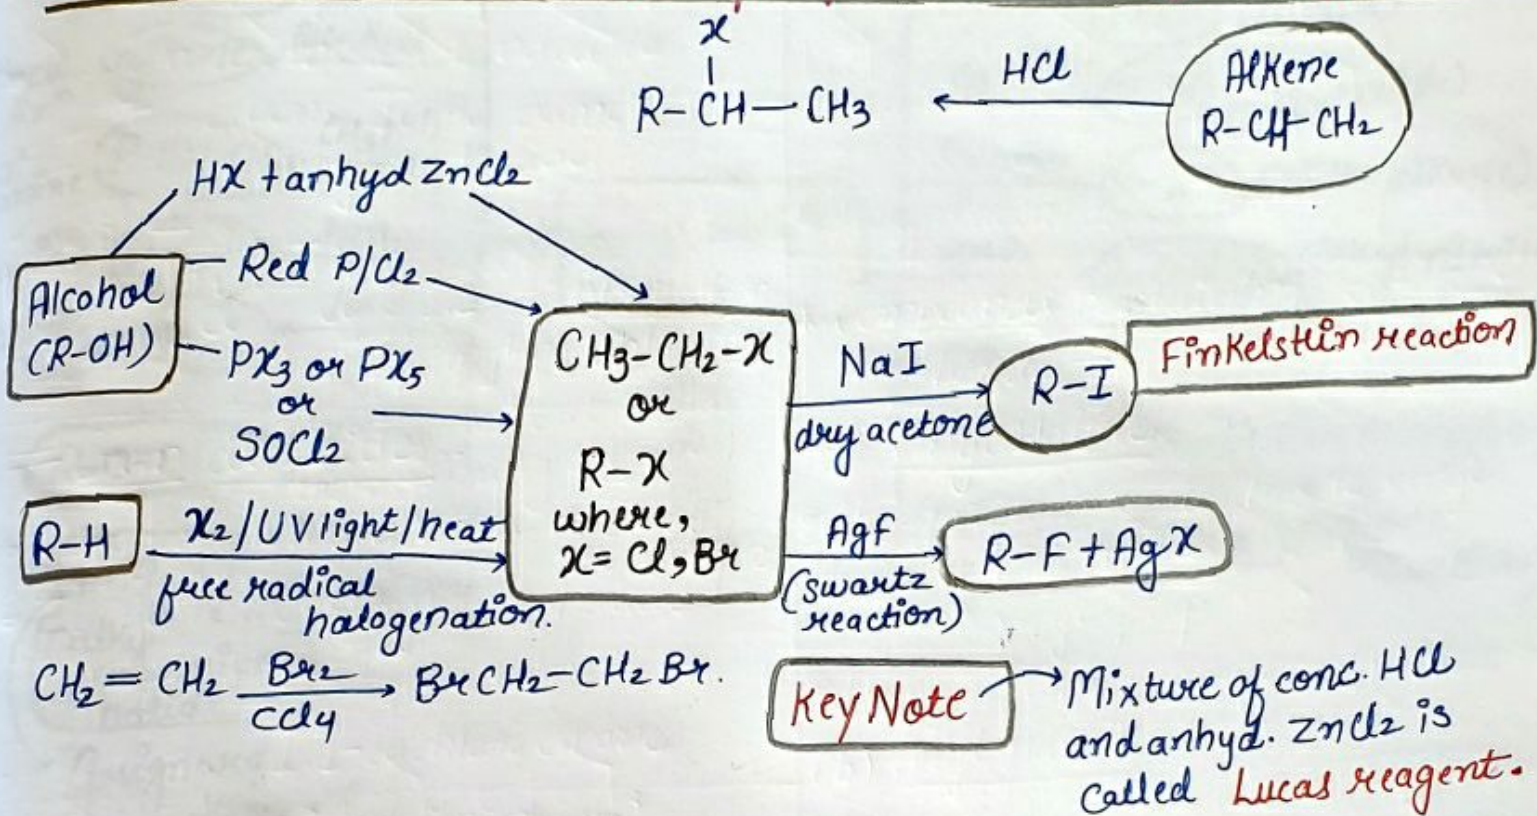 x
|
R-CH-CH3
HCl
Alkene
R-CH-CH2
HX + anhyd ZnCl2
Red P/Cl2
Alcohol
(R-OH)
PX3 or PX5
or
SOCl2
CH3-CH2-X
or
R-X
where,
X= Cl, Br
NaI
dry acetone
R-I
Finkelstein reaction
R-H
X2/UV light/heat
free radical
halogenation.
AgF
(swartz
reaction)
R-F + AgX
CH2=CH2 Br2 → BrCH2-CH2Br.
CCl4
Key Note
→ Mixture of conc. HCl
and anhyd. ZnCl2 is
called Lucas reagent.